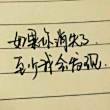 如果你消失了
至少我会发现.